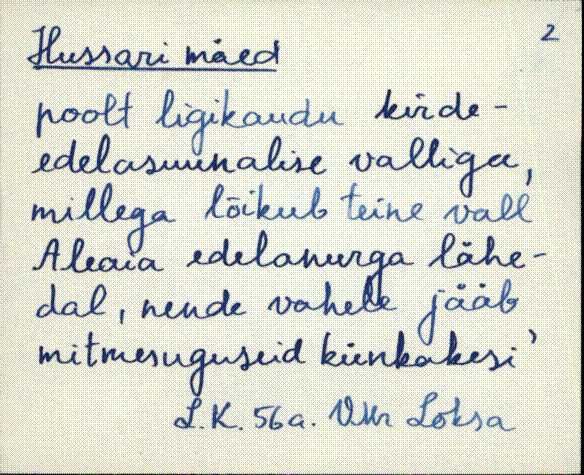 2
Hussari mäed
poolt ligikaudu kirde-
edelasuunalise valliga,
millega lõikub teine vall
Aleaia edelanurga lähe-
dal, nende vahele jääb
mitmesuguseid künkakesi’
L.K. 56 a. Loksa